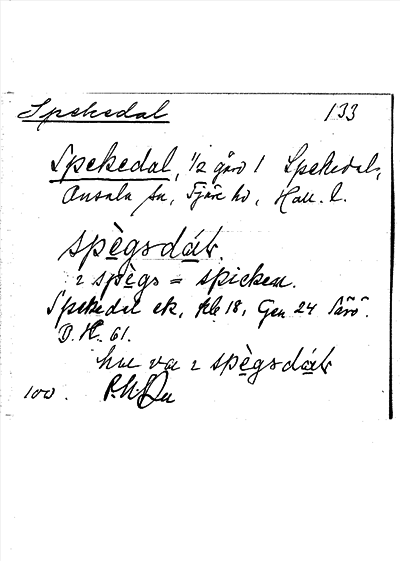 Spekedal 133
Spekedal, 1/2 gård / Spekedal,
Onsala sn, Fjäre hd, Hall. l.
spègsdáɫr.
ɿ spègs = spicken.
Spekedal ek, kbl 18, Gen 24 Särö.
D.H. 61.
hu va ɿ spègsdáɫr
100.